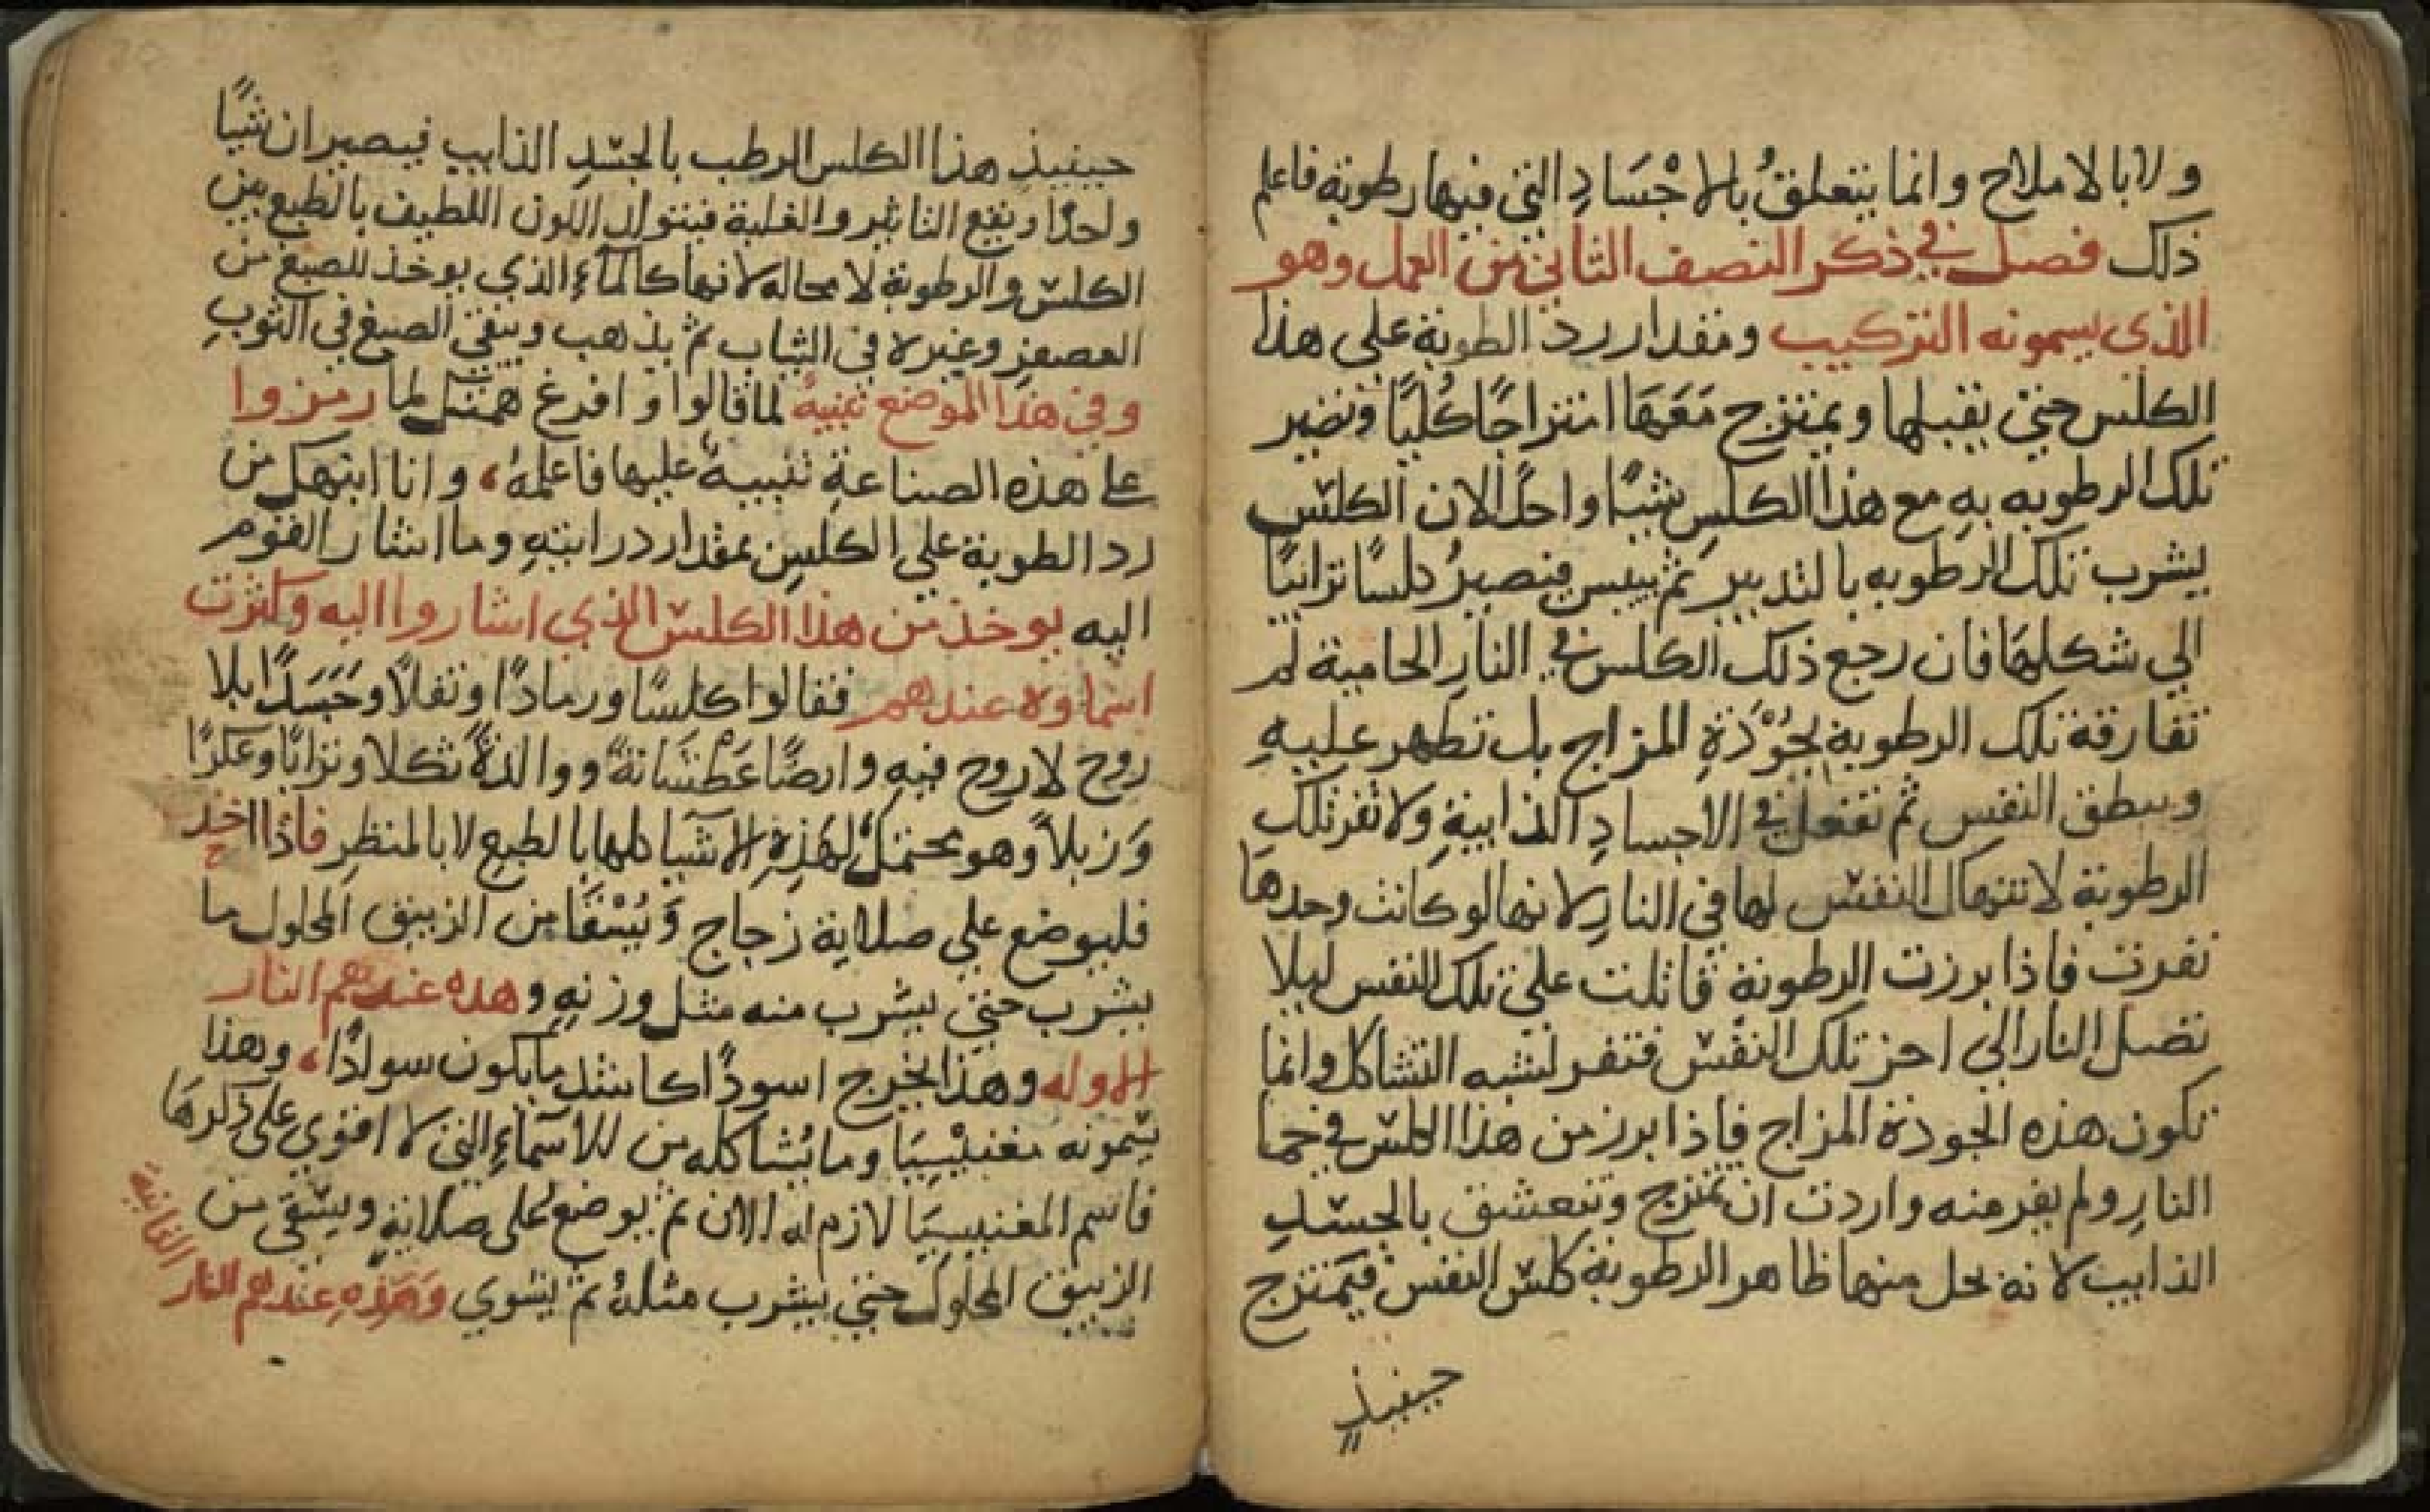 ولا بالاملاح وانما يتعلقُ بالاجْسَادِ التي فيها رطوبة فاعلم
ذلك فصل في ذكر النصف الثاني من العمل وهو
الذي يسمونه التركيب ومقدار رد الطوبة على هذا
الكلس حتى يقبلها ويمتزج مَعَهَا امتزاجًا كُليًا وتصير
تلك الرطوبه به مع هذا الكلس شيًا واحدًا لان الكلس
يشرب تلك الرطوبه بالتدبير ثم ييبس فيصيرُ كلسًا ترابيًا
الي شكلهَا فان رجع ذلك الكلس في النارِ الحامية لم
تفارقة تلك الرطوبة لجُوْدَةِ المزاج بل تظهر عليهِ
وسطق النفس ثم تفعل في الاجسادِ الذايبةِ ولا تفر تلك
الرطوبة لانتهاك النفس لها في النارِ لانها لو كانت وحدهَا
نفرت فاذا برزت الرطوبة قاتلت على تلك النفس ليلا
تصل النار الي احز تلك النفس فتنفر لشبه التشاكل وانما
تكون هذه الجودة المزاج فاذا برز من هذا الكلس في حما
النارِ ولم يفر منه واردت ان تمتزج وتتعشق بالجسدِ
الذايب لانه يحل منها ظاهر الرطوبة كلس النفس فيَمتزج
حينيذٍ
حينيذٍ هذا الكلس الرطب بالجسدِ الذايب فيصيران شيًا
واحدًا ويقع التاثير والغلبة فيتولد اللون اللطيف بالطبع من
الكلس والرطوبة لا محاله لانها كالمآءِ الذي يوخذ للصبغ من
العصفر وغيره في الثياب ثم يذهب ويبقى الصبغ في الثوبِ
وفي هذا الموضع تنبيهٌ لما قالوا وافرغ لما رمزوا
على هذه الصناعةِ تنبيهٌ عليها فاعلمهُ، وانا ابتهل من
رد الطوبة علي الكلسِ بمقدار درايتهِ وما اشار القوم
اليه يوخذ من هذا الكلس الذي اشاروا اليه وكثرت
اسماوه عندهم فقالوا كلسًا ورمادًا وثفلاً وجَسَدًا بلا
روح لا روح فيهِ وارضًا عَطْشَانةً ووالدةً ثكلا وترابًا وعكرًا
وَزبلاً وهو محتملٌ لهذِهِ الاشيا كلها بالطبعِ لا بالمنظرِ فاذا اخد
فليوضع علي صلايةِ زجاج وَيُسْقَا من الزيبق المحلول ما
يشرب حتى يشرب منه مثل وزنهِ وهده عندهم النار
الاوله وهذا يخرج اسودًا كاشد ما يكون سوادًا، وهذا
يسمونه مغنيْسِيَا وما يُشاكله من الاسمآءِ التي لا اقوي على ذكرهَا
فاسم المغنيسِيَا لازم له الان ثم يوضع على صلايةٍ ويسقي من
الزيبق المحلول حتى يشرب مثلهُ ثم يشوي وَهَذِهِ عِندهم النار
الثانية